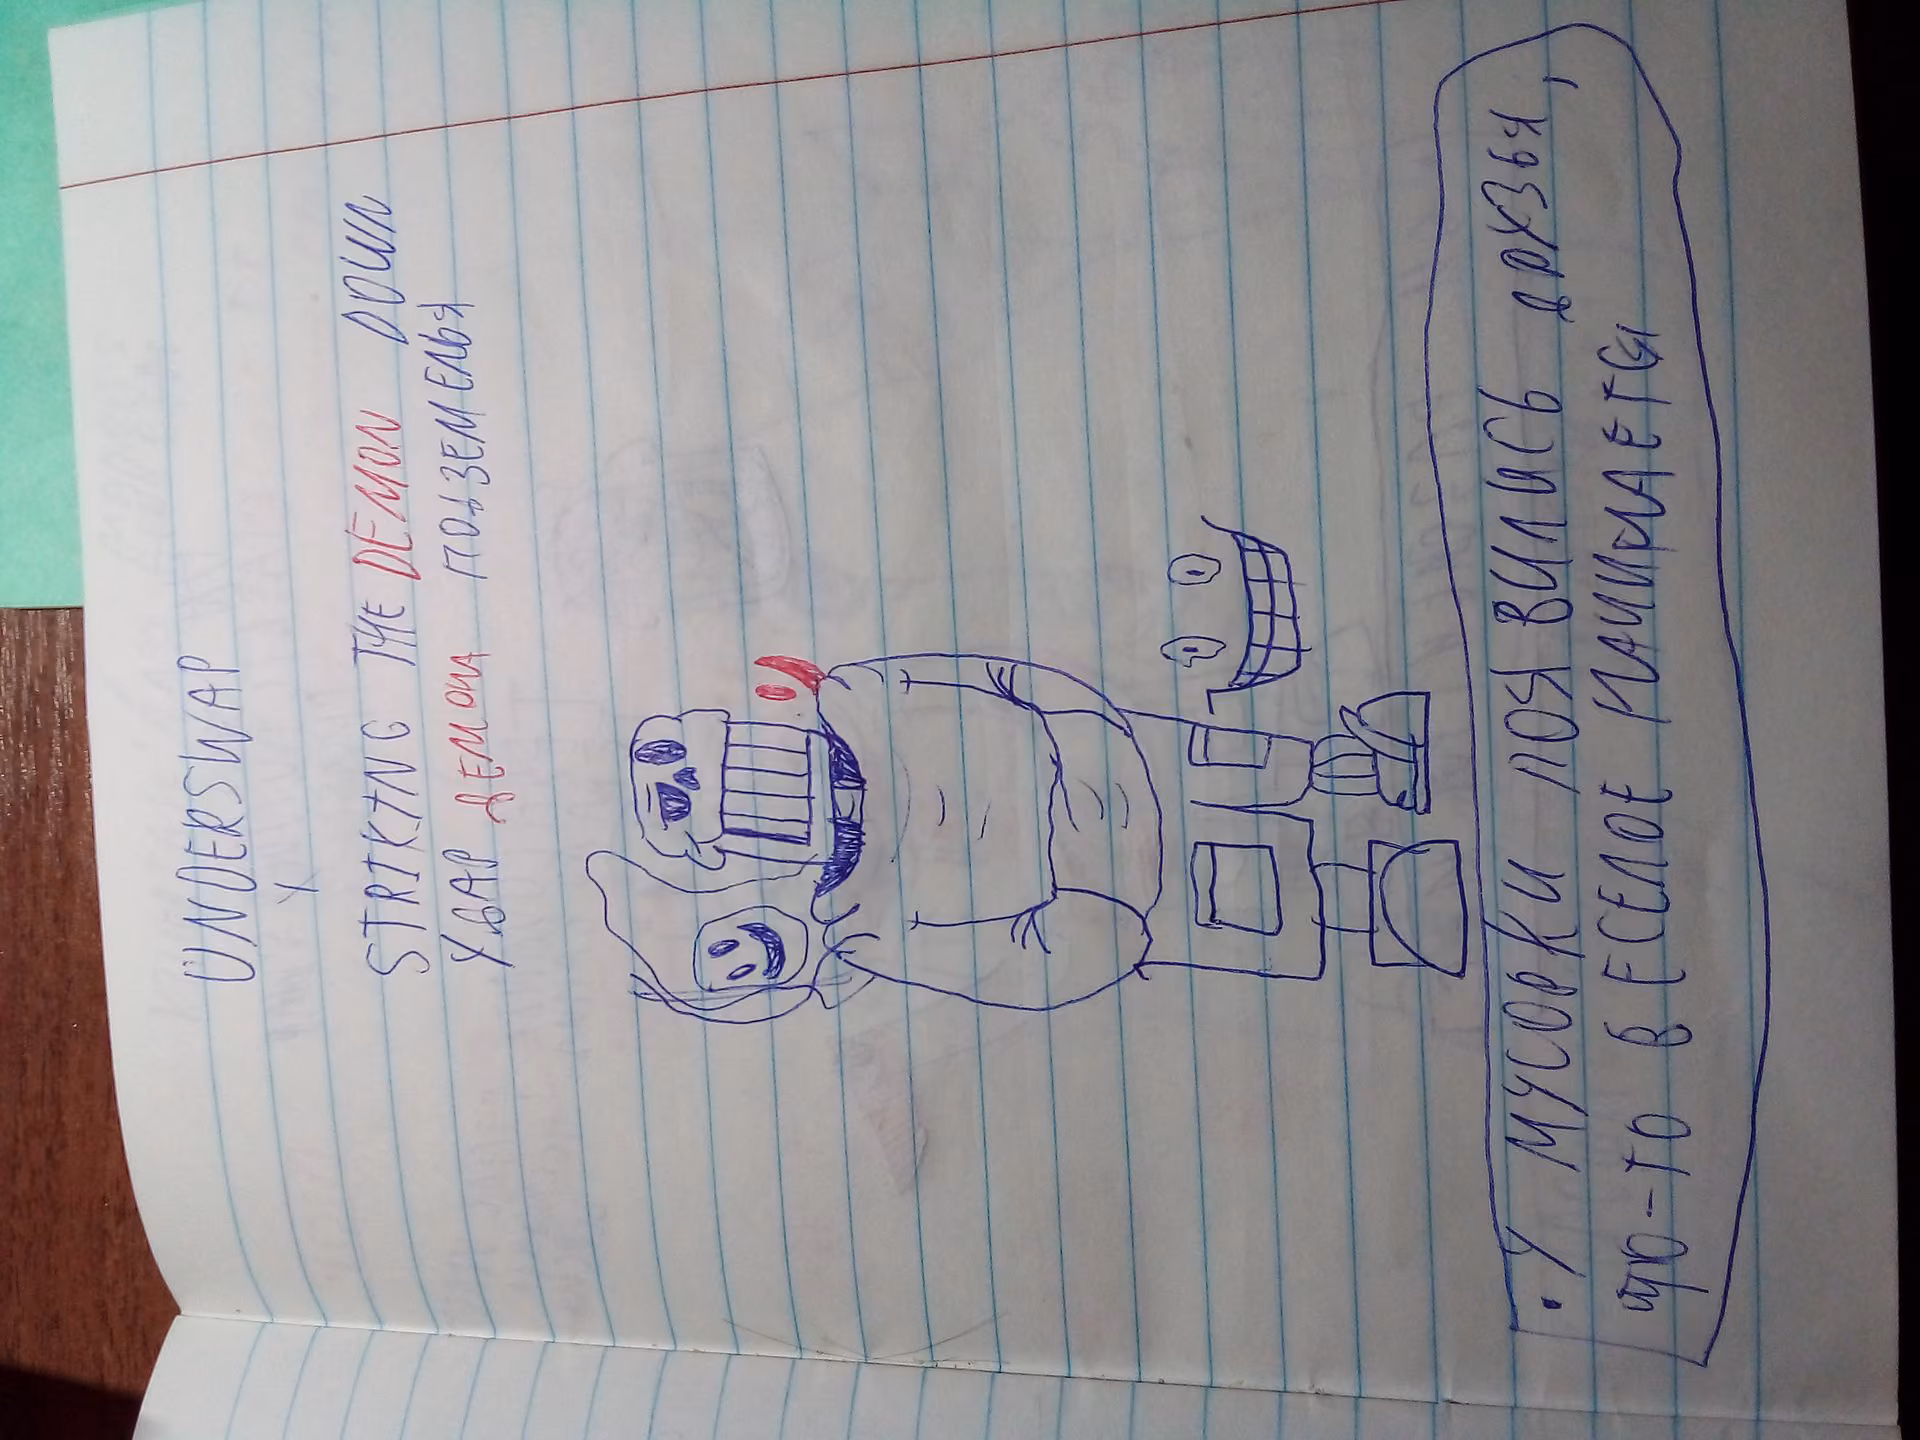 UNDERSWAP
X
STRIKING THE DEMON DOWN
УДАР ДЕМОНА ПОДЗЕМЕЛЬЯ
• У МУСОРКИ ПОЯВИЛИСЬ ДРУЗЬЯ,
ЧТО-ТО ВЕСЕЛОЕ НАЧИНАЕТСЯ